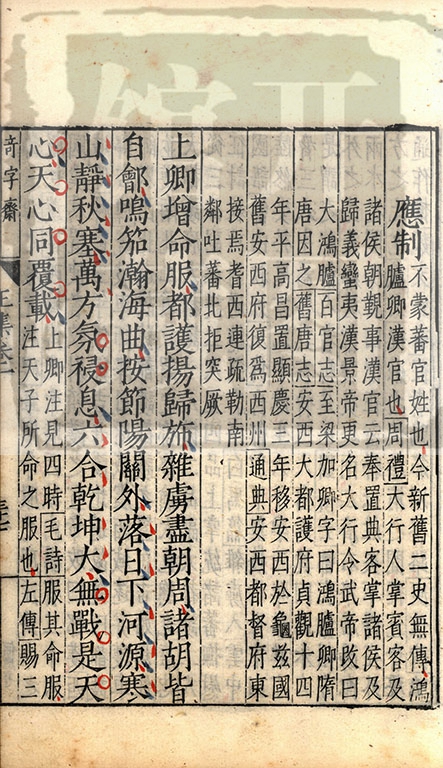 應制不蒙蕃官姓也今新舊二史無傳鴻
臚卿漢官也周禮大行人掌賓客及
諸侯朝覲事漢官云奉置典客掌諸侯及
歸義蠻夷漢景帝更名大行令武帝改曰
大鴻臚百官志至梁加卿字曰鴻臚卿隋
唐因之舊唐志安西大都護府貞觀十四
年平高昌置顯慶三年移安西於龜兹國
舊安西府復爲西州通典安西都督府東
接焉耆西連疏勒南
鄰吐蕃北拒突厥
上卿增命服都護揚歸斾雜虜盡朝周諸胡皆
自鄶鳴笳瀚海曲按節陽關外落日下河源寒
山靜秋塞萬方氛祲息六合乾坤大無戰是天
心天心同覆載上卿注見四時毛詩服其命服
注天子所命之服也左傳賜三
奇字齋